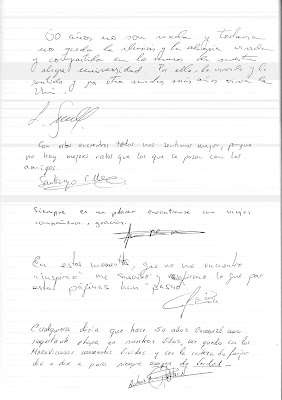 50 años no son nada y todavía
nos queda la ilusión y la alegría vivida
y compartida en los muros de nuestra
alegre universidad. Por ello, lo vivido y lo
sentido y por otros muchos más años viva la
Uni.
Con estos encuentros todos nos sentimos mejor, porque
no hay mejores ratos que los que se pasan con los
amigos.
Santiago
Siempre es un placer encontrarse con viejos
compañeros, gracias.
En estos momentos, que no me encuentro
"inspirado" me suscribo y refirmo lo que por
estas páginas han "pasado"
Cualquiera diría que hace 50 años comenzó una
importante etapa en nuestras vidas, me quedo con los
Maravillosos momentos vividos y con la certeza de forjar
día a día y para siempre